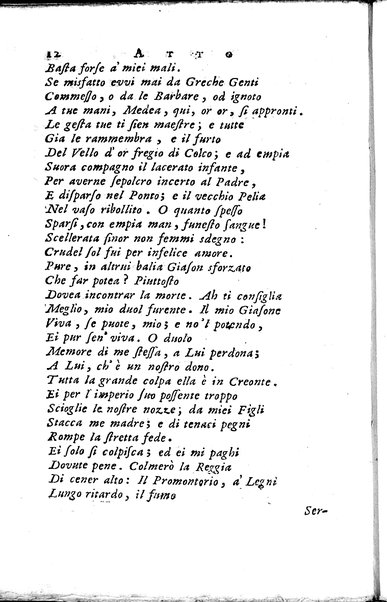 12 ATTO
Baſta forſe a' miei mali.
Se misfatto evvi mai da Greche Genti
Commeſſo, o da le Barbare, od ignoto
A tue mani, Medea, qui, or or, ſi appronti.
Le geſta tue ti ſien maeſtre; e tutte
Gia le rammembra, e il furto
Del Vello d'or fregio di Colco; e ad empia
Suora compagno il lacerato infante,
Per averne ſepolcro incerto al Padre,
E diſparſo nel Ponto; e il vecchio Pelia
Nel vaſo ribollito. O quanto ſpeſſo
Sparſi, con empia man, funeſto ſangue!
Scellerata finor non femmi sdegno:
Crudel ſol fui per infelice amore.
Pure, in altrui balia Giaſon sforzato
Che far potea? Piuttoſto
Dovea incontrar la morte. Ah ti conſiglia
Meglio, mio duol furente. Il mio Giaſone
Viva, ſe puote, mio; e no'l potendo,
Ei pur ſen' viva. O duolo
Memore di me ſteſſa, a Lui perdona;
A Lui, ch'è un noſtro dono.
Tutta la grande colpa ella è in Creonte.
Ei per l'imperio ſuo poſſente troppo
Scioglie le noſtre nozze; da miei Figli
Stacca me madre; e di tenaci pegni
Rompe la ſtretta fede.
Ei ſolo ſi colpiſca; ed ei mi paghi
Dovute pene. Colmerò la Reggia
Di cener alto: Il Promontorio, a' Legni
Lungo ritardo, il fumo
Ser-